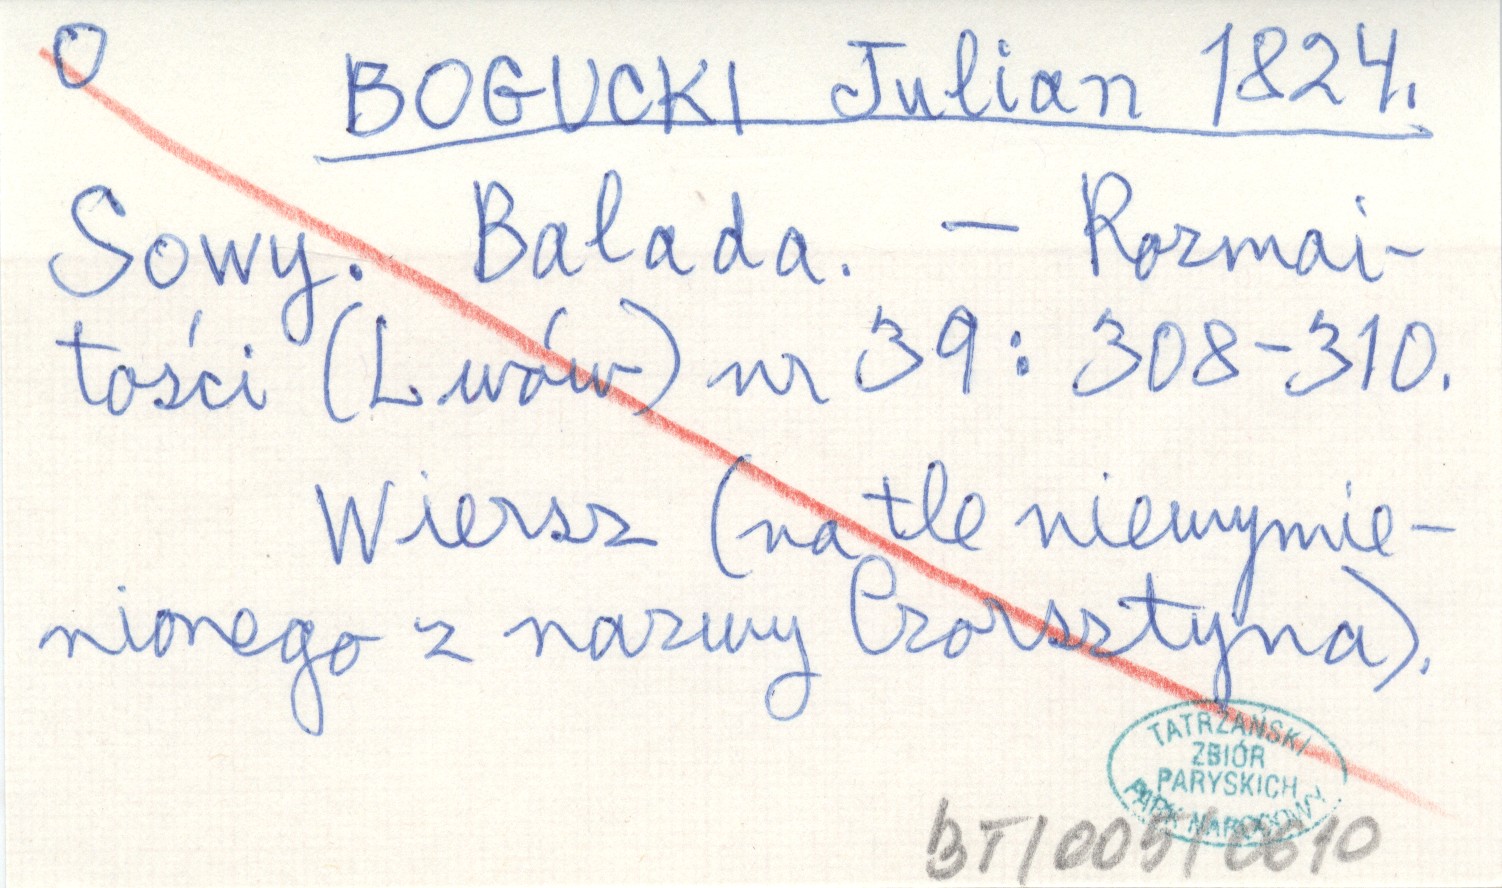 O
BOGUCKI Julian 1824.
Sowy. Balada. — Rozmai-
tości (Lwów) nr 39: 308-310.
Wiersz (na tle niewymie-
nionego z nazwy Czorsztyna).
TATRZAŃSKI
ZBIÓR
PARYSKICH
PARK NARODOWY
BT/005/0610